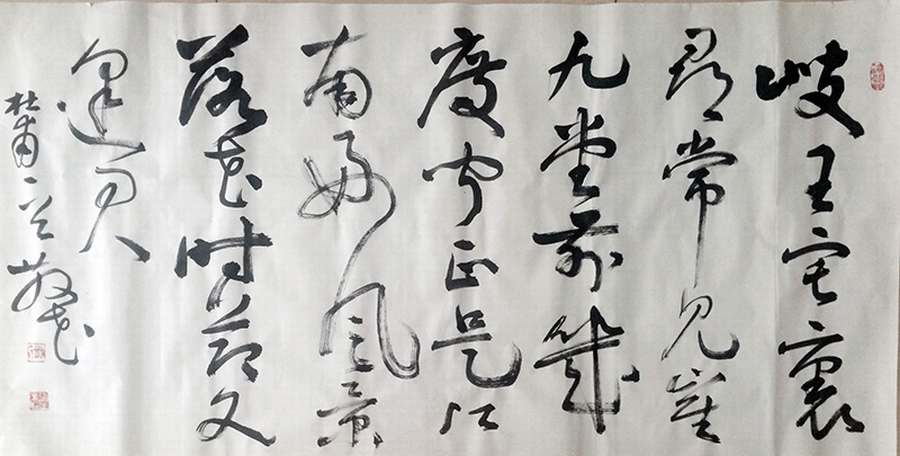 岐王宅裏
尋常見崔
九堂前幾
度聞正是江
南好風景
落花時節又
逢君
杜甫